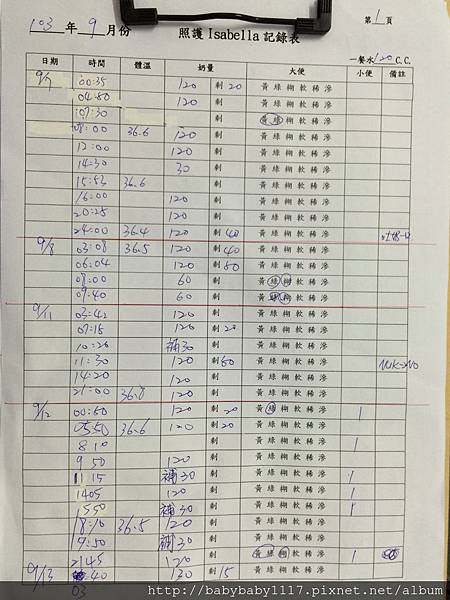 103 年 9 月份 照護 Isabella 記錄表 第 1 頁
一餐水 120 C.C.
日期 時間 體溫 奶量 大便 小便 備註
9/7 00:35 120 剩 20 黃 綠 糊 軟 稀 滲
04:50 120 剩 黃 綠 糊 軟 稀 滲
07:30 剩 黃 綠 糊 軟 稀 滲
08:00 36.6 120 剩 黃 綠 糊 軟 稀 滲
12:00 120 剩 黃 綠 糊 軟 稀 滲
14:30 30 剩 黃 綠 糊 軟 稀 滲
15:53 36.6 剩 黃 綠 糊 軟 稀 滲
16:00 120 剩 黃 綠 糊 軟 稀 滲
20:25 120 剩 黃 綠 糊 軟 稀 滲
24:00 36.4 120 剩 40 黃 綠 糊 軟 稀 滲
9/8 03:08 36.5 120 剩 40 黃 綠 糊 軟 稀 滲
06:04 120 剩 80 黃 綠 糊 軟 稀 滲
08:00 60 剩 黃 綠 糊 軟 稀 滲
09:40 60 剩 黃 綠 糊 軟 稀 滲
9/11 03:42 120 剩 黃 綠 糊 軟 稀 滲
07:15 120 剩 20 黃 綠 糊 軟 稀 滲
10:20 補30 剩 黃 綠 糊 軟 稀 滲
11:30 120 剩 60 黃 綠 糊 軟 稀 滲
14:20 120 剩 黃 綠 糊 軟 稀 滲
21:00 36.8 120 剩 黃 綠 糊 軟 稀 滲
9/12 00:50 120 剩 20 黃 綠 糊 軟 稀 滲 1
0550 36.6 120 剩 20 黃 綠 糊 軟 稀 滲
810 剩 黃 綠 糊 軟 稀 滲 1
950 120 剩 黃 綠 糊 軟 稀 滲
1115 補30 剩 黃 綠 糊 軟 稀 滲 1
1405 120 剩 黃 綠 糊 軟 稀 滲 1
1550 補30 剩 黃 綠 糊 軟 稀 滲 1
18:10 36.5 120 剩 黃 綠 糊 軟 稀 滲
19:50 補30 剩 黃 綠 糊 軟 稀 滲
2145 120 剩 黃 綠 糊 軟 稀 滲 1
9/13 :40 130 剩 15 黃 綠 糊 軟 稀 滲
03
http://babybaby1117.pixnet.net/album